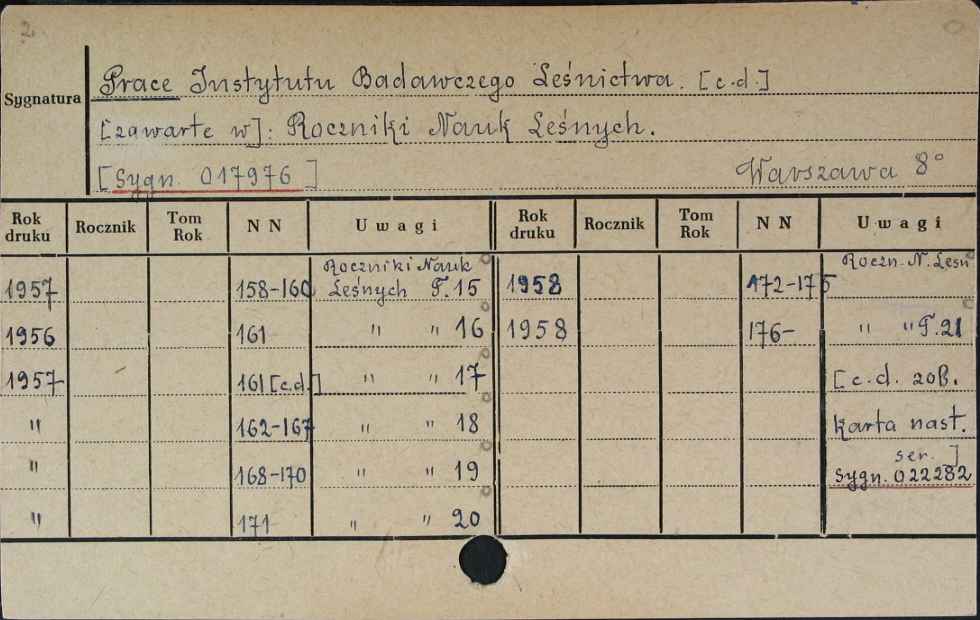 2
Sygnatura
Prace Instytutu Badawczego Leśnictwa. [c.d.]
[zawarte w]: Roczniki Nauk Leśnych.
[Sygn. 017976]
Warszawa 8°
Rok druku Rocznik Tom Rok N N Uwagi Rok druku Rocznik Tom Rok N N Uwagi
1957 158-160 Roczniki Nauk Leśnych T. 15 1958 172-175 Roczn. N. Leśn
1956 161 " " 16 1958 176- " " T. 21
1957 161 [c.d.] " " 17 [c.d. zob.
" 162-167 " " 18 karta nast.
" 168-170 " " 19 ser. ] Sygn. 022282
" 171 " " 20